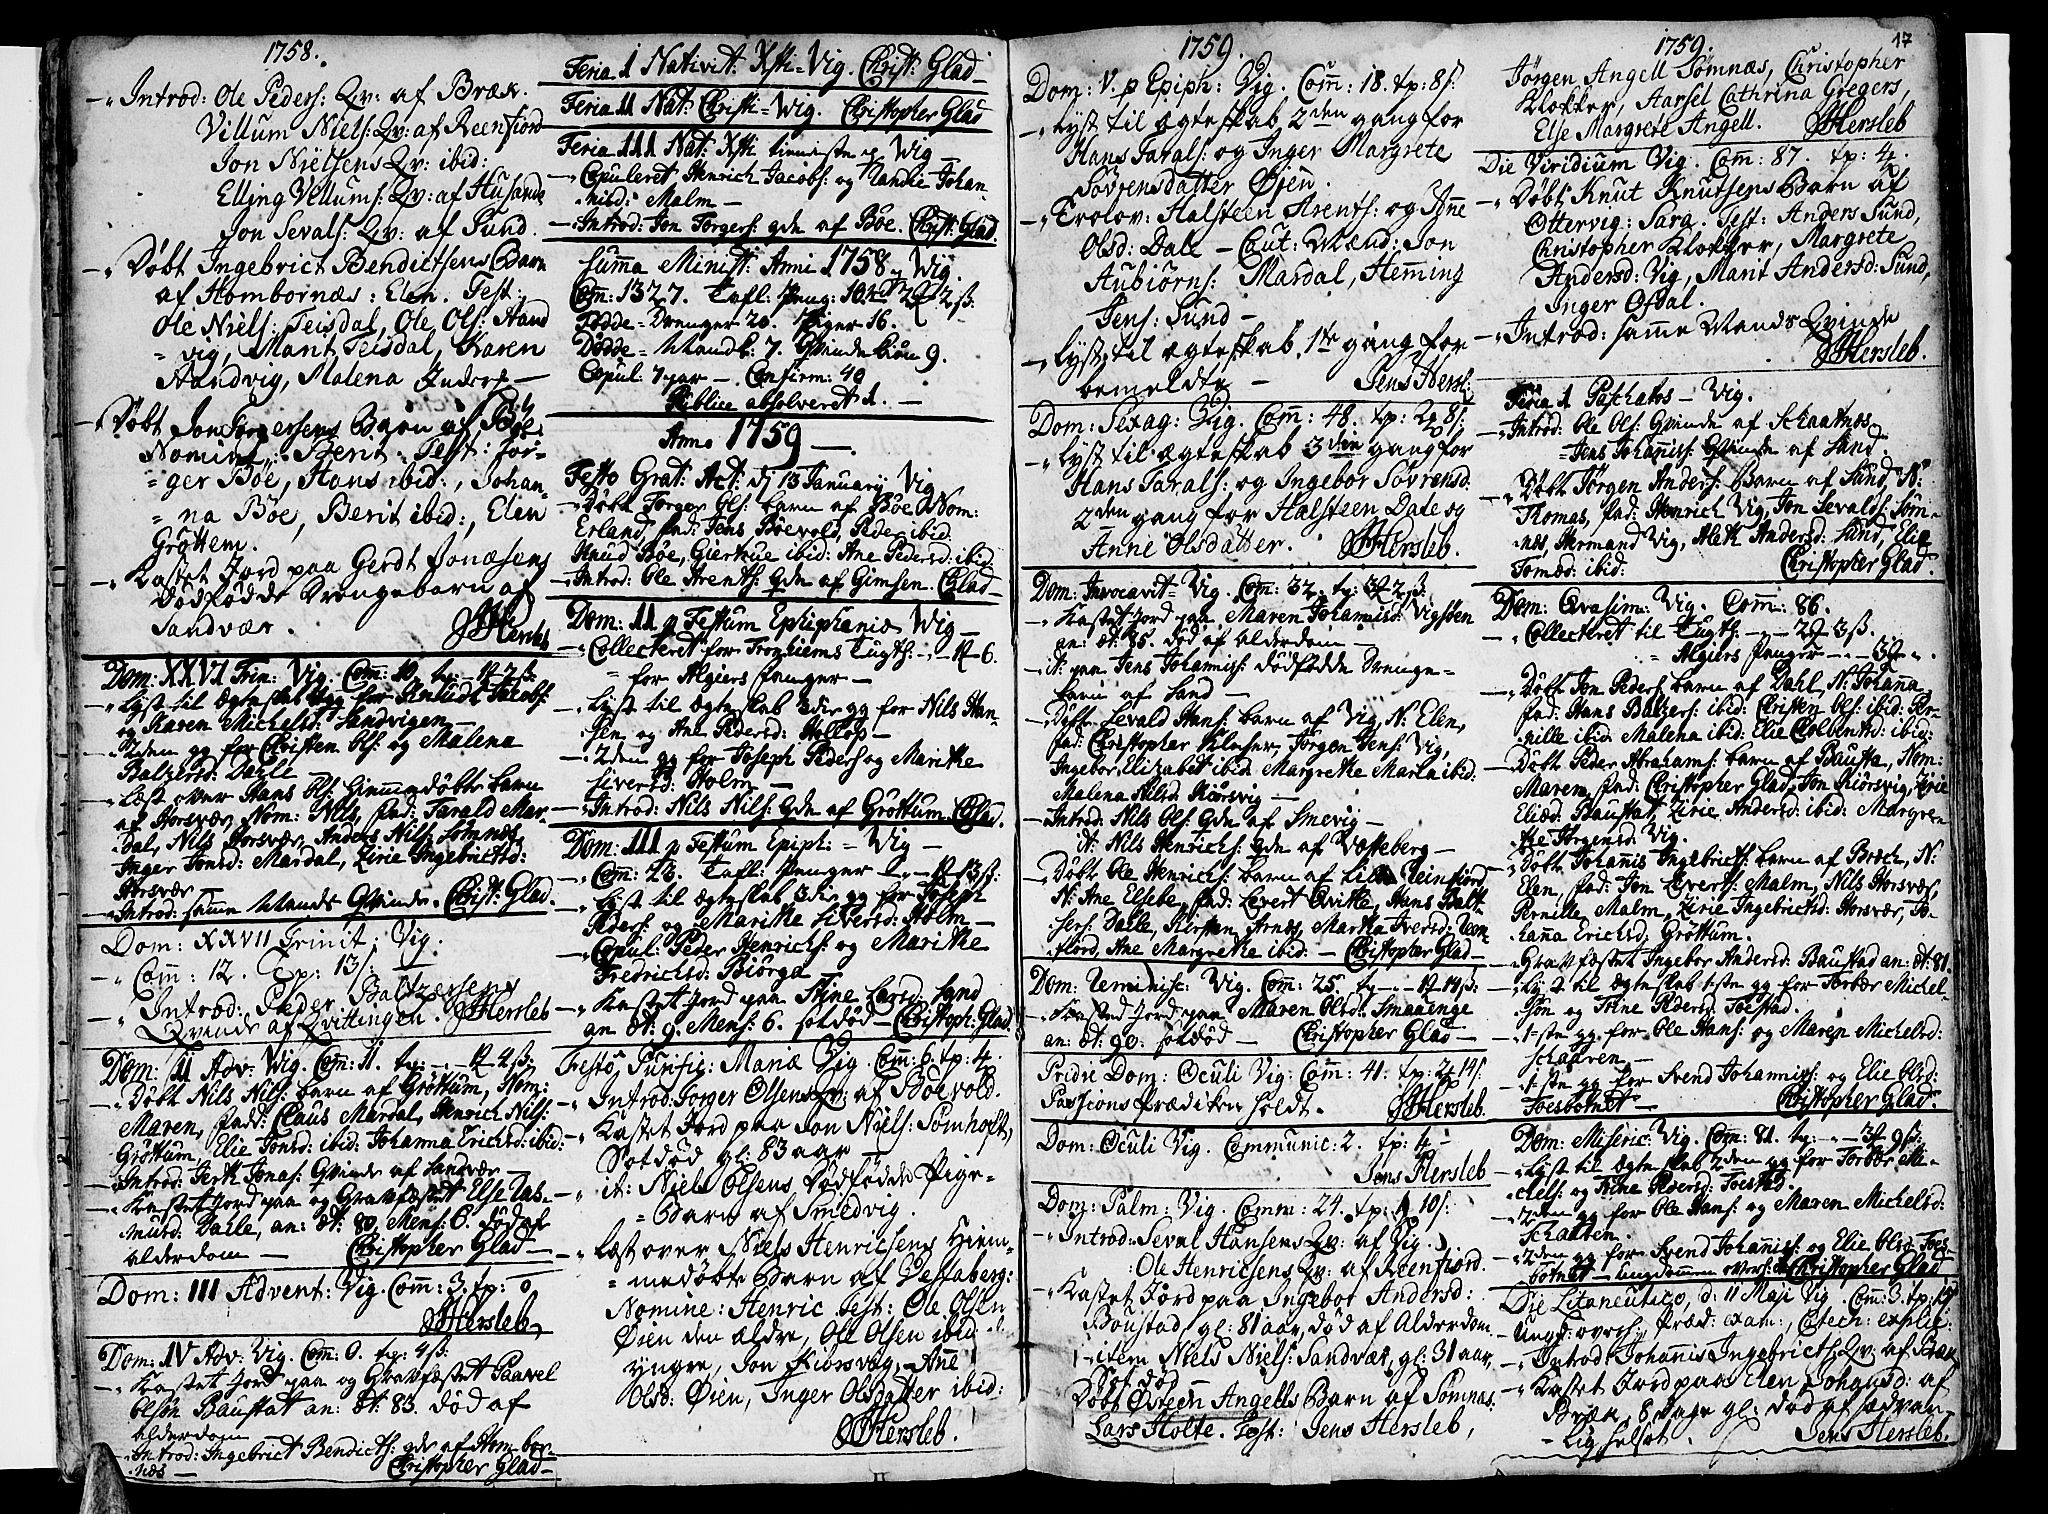 1758.
Introd: Ole Peders: Qv: af Bræk.
Villum Niels: Qv: af Reenfiord
Jon Nielsens Qv: ibid:
Elling Vellums: Qv: af Husande
Jon Sevals: Qv: af Sund.
Døbt Ingebrict Bendictsens Barn
af Hombornæs: Elen. Test:
Ole Niels: Teisdal, Ole Ols: Hand
vig, Marit Teisdal, Karen
Handvig, Malena Inders
Døbt Jon Torgersens Barn af Bøe
Nomine: Berit: Test: Jør-
ger Bøe, Hans ibid:, Johan-
na Bøe, Berit ibid:, Elen
Grøttem.
Kastet Jord paa Gerdt Jonæsens
dødfødde Drengebarn af
Sandvær. JHersleb
Dom: XXVI Trin: Vig. Com: 10. tp:
Lyst til ægteskab
og Karen Michelsd: Sandvigen
2den gg for Christen Ols: og Malena
Baltzersd: Dahle
Læst over Hans Ols: hiemmedøbte barn
af Horsvær, Nom: Nils, fad: Tarald Mar-
dal, Nils Horsvær, Anders Nils: Sømnæs,
Inger Jonsd: Mardal, Zirie Ingebrichtsd:
Horsvær
Introd: samme Mands Qvinde. Christ: Glad.
Dom: XXVII Trinit: Vig.
Com: 12. Tp: 13/:
Introd: Peder Baltzersens
Qvinde af Qvittingen. JHersleb
Dom: II Adv: Vig. Com: 11. tp:
Døbt Nils Nils: barn af Grøttum, Nom:
Maren, fad: Claus Mardal, Henrich Nils:
Grøttum, Elie Jonsd: ibid: Johanna Erichsd: ibid:
Introd: Gerth Jonas: Qvinde af Sandvær
Kastet Jord paa og Gravfæstet Else Ras-
musd: Dahle, an: æt: 80. Mens: 6. død af
alderdom Christopher Glad
Dom: III Advent: Vig. Com: 3. tp: 0
JHersleb
Dom: IV Adv: Vig. Com: 0. tp: 4/3:
Kastet Jord paa og Gravfæstet Paavel
Olsøn Baustat an: æt: 83. død af
alderdom
Introd: Ingebrict Bendicths: qde af Hombor-
næs Christopher Glad
Feria 1 Nativit: Xsti Vig. Christ: Glad
Feria II Nat: Christi Vig. Christopher Glad
Feria III Nat: Xsti Vig
Copuleret Henrich Jacobs: og Johan-
ibid: Malm
Introd: Jon Torgers: qde af Bøe. Christ: Glad.
Summa Minist: Anni 1758 Vig.
Com: 1327. Tafl: Peng:
Fødde Drenger 20. Piger 16.
Dødde Mandk: 7. Qvindekiøn 9.
Copul: 7 par. Confirm: 40
Publice absolveret 1.
Anno 1759
Festo Grat: Act: d 13 January Vig
Døbt Torger Ols: barn af Bøe Nom:
Erland, fad: Jens Bøevold, Peder ibid:
Knud Bøe, ibid: Ane Pedersd: ibid:
Introd: Ole Arents: qde af Gimsen. Glad
Dom: II p Festum Epiphaniæ Vig
Collecteret for Tronhiems Tugth:
for Algiers Penger
Lyst til ægteskab 3die gg for Nils Han-
sen og Ane Pedersd: Hollop
2den gg for Joseph Peders og Marithe
Sivertsd: Holm
Introd: Nils Nils: Qde af Grøttum. Glad.
Dom: III p Festum Epiph: Vig
Com: 28. Tafl: Penger
Lyst til ægteskab 3die gg for Joseph
Peders: og Marithe Siversd: Holm
Copul: Peder Henrichs: og Marithe
Fredrichsd: Biørga
Kastet Jord paa Stine Larsd: Sand
an: æt: 9. Mens: 6. sotdød Christoph: Glad
Festo, Purific: Mariæ Vig. Com: 6. tp: 4.
Introd: Torger Olsens Qv: af Bøevold.
Kastet Jord paa Jon Niels: Somhoft,
Sotdød gl: 83 aar
it: Niels Olsens Dødfødde Pige-
Barn af Smedvig.
Læst over Niels Henricsens Hiem-
medøbte Barn af Vestaberg:
Nomine: Henric Test: Ole Olsen
Øien den ældre, Ole Olsen ibid
yngre, Jon Kiørsvig, Ane
Olsd: Øien, Inger Olsdatter ibid:
JHersleb.
1759.
Dom: V. p Epiph: Vig. Com: 18. tp: 8/:
Lyst til ægteskab 2den gang for
Hans Tarals: og Inger Margrete
Søvrensdatter Øien.
Trolov: Halsteen Arents: og Ane
Olsd: Dale Caut: Mænd: Jon
Aubiørns: Mardal, Heming
Jens: Sund
Lyst til ægteskab 1te gang for
bemeldte Jens Hersl:
Dom: Sexag: Vig. Com: 48. tp:
Lyst til ægteskab 3den gang for
Hans Tarals: og Ingebor Søvrensd:
2den gang for Halsteen Dale og
Anne Olsdatter. JHersleb.
Dom: Invocavit Vig. Com: 32. tp:
Kastet Jord paa Maren Johannisd: Vigsøen
an: æt: 75. død af alderdom
it: paa Jens Johannis: dødfødde Drenge-
barn af Sand
Døbt Sevald Hans: barn af Vig, N: Elen,
fad: Christopher Klocher, Jørgen Jens: Vig,
Ingebor Elizabet ibid: Margrethe Maria ibid:
Malena Nilsd: Kiørsvig
Introd: Nils Ols: Qde af Smevig
it: Nils Henrichs: Qde af Vesteberg
Døbt Ole Henrichs: barn af Lille Reinfiord,
N: Ane Elsebe, fad: Levert Qvitte, Hans Balt-
sers: Dahle, Kirsten Arnæs, Martha Iversd: Reen-
fiord, Ane Margrethe ibid: Christopher Glad
Dom: Reminisc: Vig. Com: 25. tp:
Kastet Jord paa Maren Olsd: Smaaenge
an: æt: 90. sotdød Christopher Glad
Pridie Dom: Oculi Vig: Com: 41: tp:
Passions Prædiken holdt. JHersleb.
Dom: Oculi Vig. Communic: 2. tp: 4
Jens Hersleb
Dom: Palm: Vig. Comm: 24. tp: 10/:
Introd: Seval Hansens Qv: af Vig.
Ole Henricsens Qv: af Reenfiord.
Kastet Jord paa Ingebor Andersd:
Boustad gl: 81 aar, død af Alderdom
item Niels Niels: Sandvær, gl: 31 aar,
Sotdød
Døbt Østeen Angells Barn af Sømnæs:
Lars Holte. Test: Jens Hersleb,
1759. 17
Jørgen Angell Sømnæs, Christopher
Klokker, Aarsel Cathrina Gregers,
Else Margrete Angell. JHersleb
Die Viridium Vig. Com: 87. tp: 4.
Døbt Knut Knutsens Barn af
Ottervig: Sara. Test: Anders Sund,
Christopher Klokker, Margrete
Andersd: Vig, Marit Andersd: Sund,
Inger Ofdal.
Introd: samme Mands Qvinde
JHersleb.
Feria 1 Paschatos Vig.
Introd: Ole Ols: Qvinde af Schaatnæs
Jens Johannis: Qvinde af Sand.
Døbt Jørgen Anders: Barn af Sand, N:
Thomas, fad: Henrich Vig, Jon Sevalds: Søm-
næs, Hermand Vig, Aleth Andersd: Sand, Elie
Tomæd: ibid: Christopher Glad.
Dom: Qvasim: Vig. Comm: 86.
Collecteret til Tugth:
Algiers Penger
Døbt Jon Peders: barn af Dahl, N: Johanna,
fad: Hans Balzers: ibid: Christen Ols: ibid: Per-
nille ibid: Malena ibid: Elie Colbensd: ibid:
Døbt Peder Abrahams: barn af Bausta, Nom:
Maren, fad: Christopher Glad, Jon Kiørsvig, Zirie
Eliæd: Baustat, Zirie Andersd: ibid: Margre-
the Jørgensd: Vig.
Døbt Johannis Ingebricths: barn af Bræch, N:
Elen, fad: Jon Siverts: Malm, Nils Horsvær,
Pernille, Malm, Zirie Ingebrictsd: Horsvær, Jo-
hanna Erichsd: Grøttum.
Gravfæstet Ingebor Andersd: Baustad an: æt: 81.
Lyst til ægteskab 1ste gg for Torbær Michel-
søn og Trine Pedersd: Toestad.
1ste gg for Ole Hans: og Maren Michelsd:
Schaaren
1ste gg for Svend Johannis: og Elie Olsd:
Toesbotnet Christopher Glad.
Dom: Miseric: Vig. Com: 81. tp:
Lyst til ægteskab 2den gg for Torbær Mi-
chels: og Trine Pedersd: Toestad.
2den gg for Ole Hans: og Maren Michelsd:
Schaaren.
2den gg for Svend Johannis: og Elie Olsd: Toes-
botnet Ungdommen overs: Christopher Glad
Die Litaneutico, d: 11 Maji Vig. Com: 3. tp:
Ungd: overh: Præd: exam: Catech: explic:
Introd: Johannis Ingebricths: Qv: af Bræk
Kastet Jord paa Elen Johansd: af
Bræk, 8 dage gl: død af sædvan-
lig helset. Jens Hersleb.